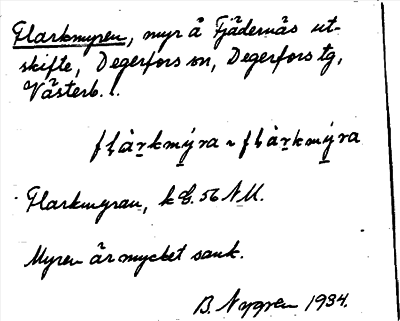 Flarkmyren, myr å Fjädernäs ut-
skifte, Degerfors sn, Degerfors tg,
Västerb. l.
flàr̠kmýra ~ flàr̠kmýra
Flarkmyran, k 56 N.M.
Myren är mycket sank.
B. Nygren 1934.